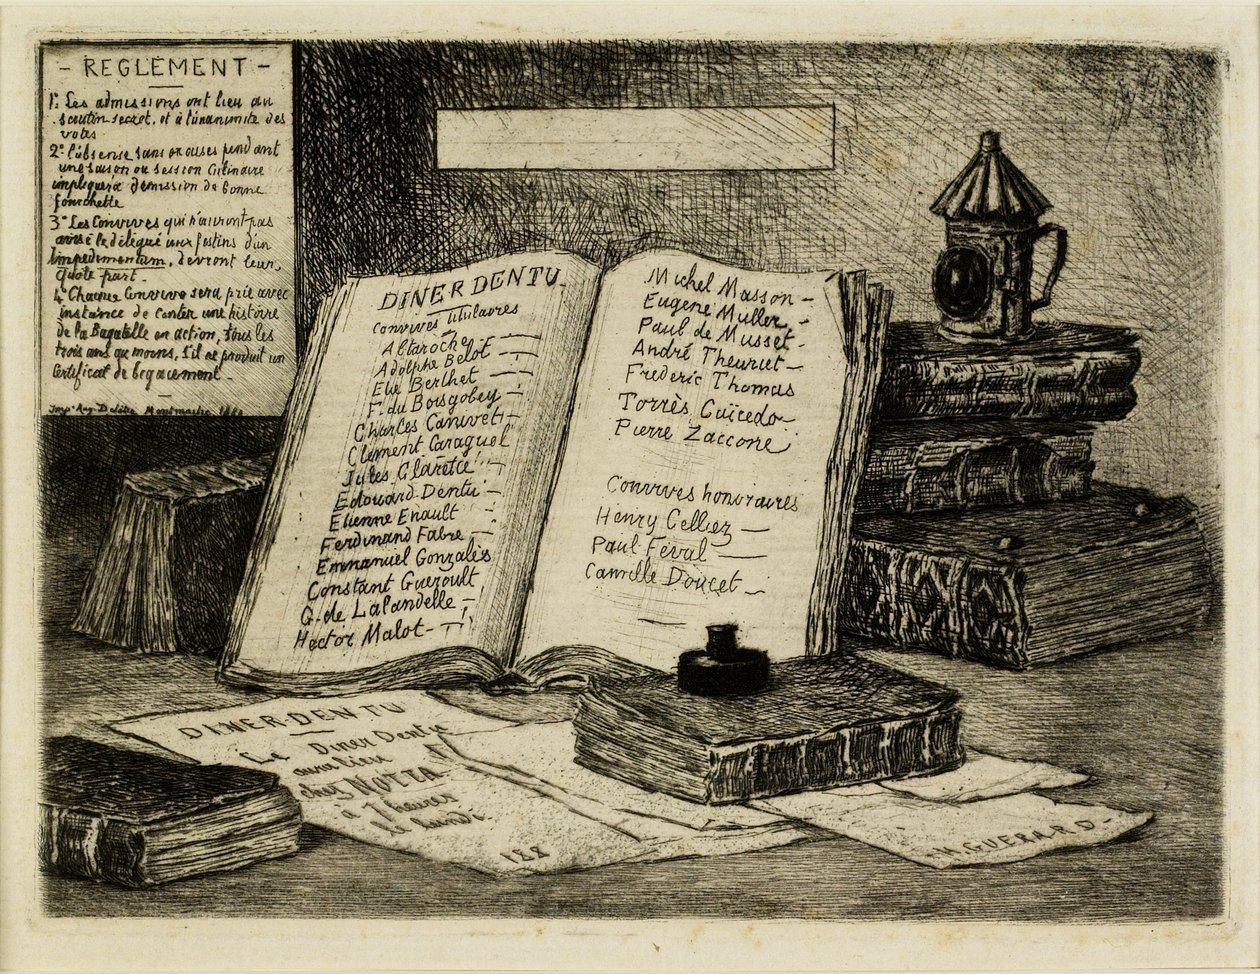 - REGLEMENT -
1º Les admissions ont lieu au
scrutin secret, et à l'unanimité des
votes
2º l'absense sans excuses pendant
une saison ou session Culinaire
impliquera démission de bonne
fourchette
3º Les Convives qui n'auront pas
avisé le délégué aux festins d'un
impedimentum, devront leur
quote part.
4º Chaque Convive sera prié avec
instance de conter une histoire
de la Bagatelle en action, tous les
trois ans au moins, s'il ne produit un
Certificat de begaiement
Impº Aug. Delâtre Montmartre
DINER DENTU
Convives titulaires
Altaroche
Adolphe Belot
Elie Berthet
F. du Boisgobey
Charles Canivet
Clément Caraguel
Jules Claretie
Edouard Dentu
Etienne Enault
Ferdinand Fabre
Emmanuel Gonzalès
Constant Guéroult
G. de La Landelle
Hector Malot
Michel Masson
Eugène Muller
Paul de Musset
André Theuriet
Frederic Thomas
Torrès Caïcedo
Pierre Zaccone
Convives honoraires
Henry Celliez
Paul Féval
Camille Doucet
DINER DENTU
Le Diner Dentu
aura lieu
chez NOTTA
à 7 heures
le lundi
188
H. GUERARD